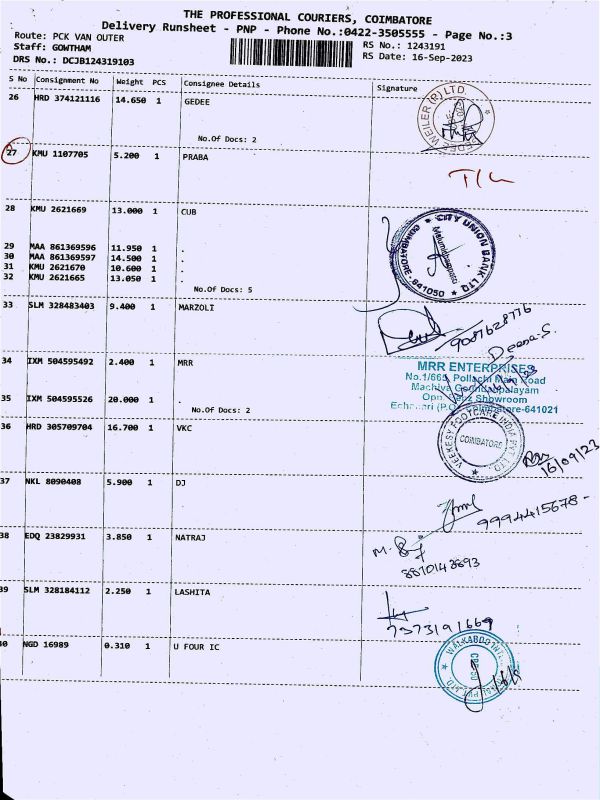 THE PROFESSIONAL COURIERS, COIMBATORE
Delivery Runsheet - PNP - Phone No.:0422-3505555 - Page No.:3
Route: PCK VAN OUTER
Staff: GOWTHAM
DRS No.: DCJB124319103
RS No.: 1243191
RS Date: 16-Sep-2023
S No Consignment No Weight PCS Consignee Details Signature
26 HRD 374121116 14.650 1 GEDEE
No.Of Docs: 2
27 KMU 1107705 5.200 1 PRABA
T/L
28 KMU 2621669 13.000 1 CUB
CITY UNION BANK LTD
COIMBATORE - 641050
29 MAA 861369596 11.950 1 .
30 MAA 861369597 14.500 1 .
31 KMU 2621670 10.600 1 .
32 KMU 2621665 13.050 1 .
No.Of Docs: 5
33 SLM 328483403 9.400 1 MARZOLI
9087628776
Deena.S.
34 IXM 504595492 2.400 1 MRR
MRR ENTERPRISES
No.1/668, Pollachi Main Road
Showroom
-641021
35 IXM 504595526 20.000 1 .
No.Of Docs: 2
36 HRD 305709704 16.700 1 VKC
VEEKESY FOOTCARE INDIA PVT. LTD.
COIMBATORE
16/09/23
37 NKL 8090408 5.900 1 DJ
9994415678-
38 EDQ 23829931 3.850 1 NATRAJ
8870143693
39 SLM 328184112 2.250 1 LASHITA
7373191669
40 NGD 16989 0.310 1 U FOUR IC
WALKAROO